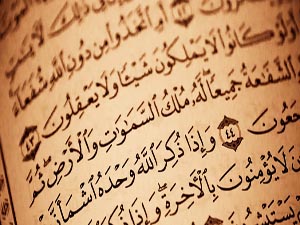 أَمِ اتَّخَذُوا مِن دُونِ اللَّهِ شُفَعَاءَ
أَوَلَوْ كَانُوا لَا يَمْلِكُونَ شَيْئًا وَلَا يَعْقِلُونَ ٤٣
الشَّفَٰعَةُ جَمِيعًا لَّهُۥ مُلْكُ السَّمَٰوَٰتِ وَالْأَرْضِ ثُمَّ
٤٤ وَإِذَا ذُكِرَ اللَّهُ وَحْدَهُ اشْمَأَزَّ
لَا يُؤْمِنُونَ بِالْآخِرَةِ وَإِذَا ذُكِرَ